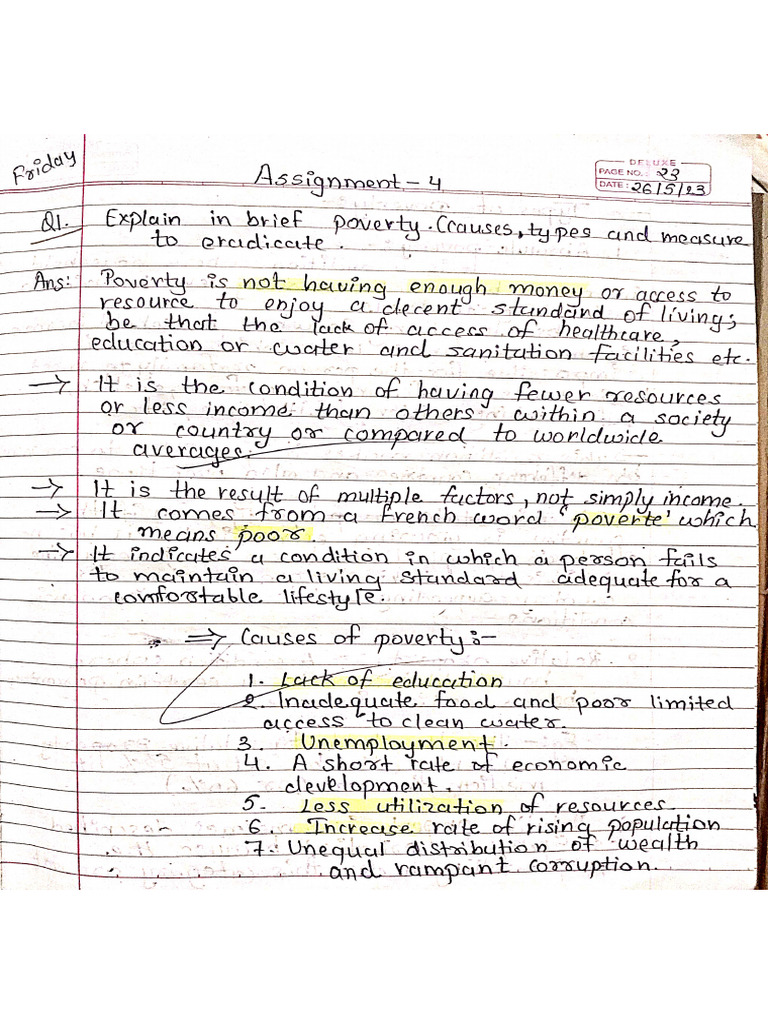 Friday
Assignment - 4
DELUXE
PAGE NO.: 23
DATE: 26/5/23
Q1. Explain in brief poverty. (causes, types and measure
to eradicate.
Ans: Poverty is not having enough money or access to
resource to enjoy a decent standard of living;
be that the lack of access of healthcare,
education or water and sanitation facilities etc.
→ It is the condition of having fewer resources
or less income than others within a society
or country or compared to worldwide
averages.
→ It is the result of multiple factors, not simply income.
→ It comes from a French word 'poverte' which
means poor.
→ It indicates a condition in which a person fails
to maintain a living standard adequate for a
comfortable lifestyle.
⇒ Causes of poverty:-
1. Lack of education
2. Inadequate food and poor limited
access to clean water.
3. Unemployment.
4. A short rate of economic
development.
5. Less utilization of resources.
6. Increase rate of rising population
7. Unequal distribution of wealth
and rampant corruption.